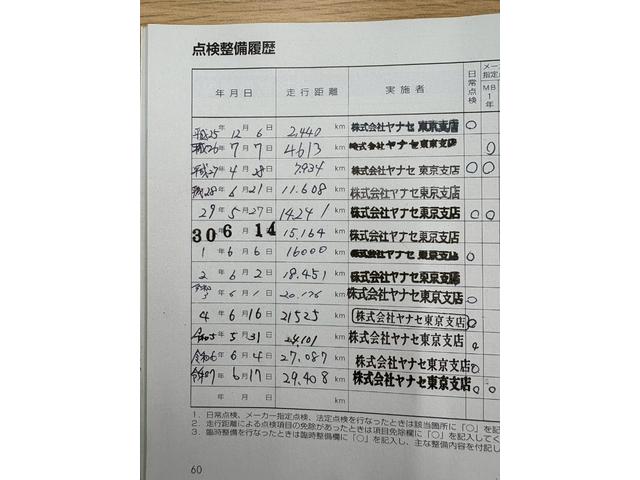 点検整備履歴
年月日 走行距離 実施者 日常点検 メーカー指定点 MB1年
平成25年12月6日 2,440 km 株式会社ヤナセ 東京支店 ○
平成26年7月7日 4613 km 株式会社ヤナセ 東京支店 ○
平成27年4月28日 7,934 km 株式会社ヤナセ 東京支店 ○ ○
平成28年6月21日 11,608 km 株式会社ヤナセ 東京支店
29年5月27日 14,241 km 株式会社ヤナセ 東京支店 ○ ○
30 6 14 15,164 km 株式会社ヤナセ 東京支店
1年6月6日 16000 km 株式会社ヤナセ 東京支店 ○
2年6月2日 18,451 km 株式会社ヤナセ 東京支店
令和3年6月1日 20,176 km 株式会社ヤナセ東京支店 ○
4年6月16日 21525 km 株式会社ヤナセ東京支店 ○
令和5年5月31日 24,101 km 株式会社ヤナセ東京支店 ○
令和6年6月4日 27,087 km 株式会社ヤナセ東京支店 ○
令和7年6月17日 29,408 km 株式会社ヤナセ東京支店 ○ ○
1．日常点検、メーカー指定点検、法定点検を行なったときは該当箇所に「○」を記
2．走行距離による点検項目の免除があったときは項目免除欄に「○」を記入してく
3．臨時整備を行なったときは臨時整備欄に「○」を記入し、主な整備内容を付記し
60